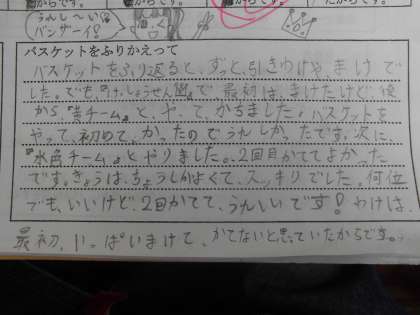 からです。
からです。
だからです。
うれし〜い!
バンザーイ!
バスケットをふりかえって
バスケットをふり返ると、ずっと引きわけや、まけで
した。でも『けっしょうせん』で最初は、まけたけど後
から、『黄チーム』と、やって、かちました。バスケットを
やって、初めて、かったのでうれしかったです。次に、
『水色チーム』とやりました。2回目かててよかった
です。きょうは、ちょうしがよくて、スッキリでした。何位
でも、いいけど、2回かてて、うれしいです!わけは、
最初、いっぱいまけて、かてないと思っていたからです。